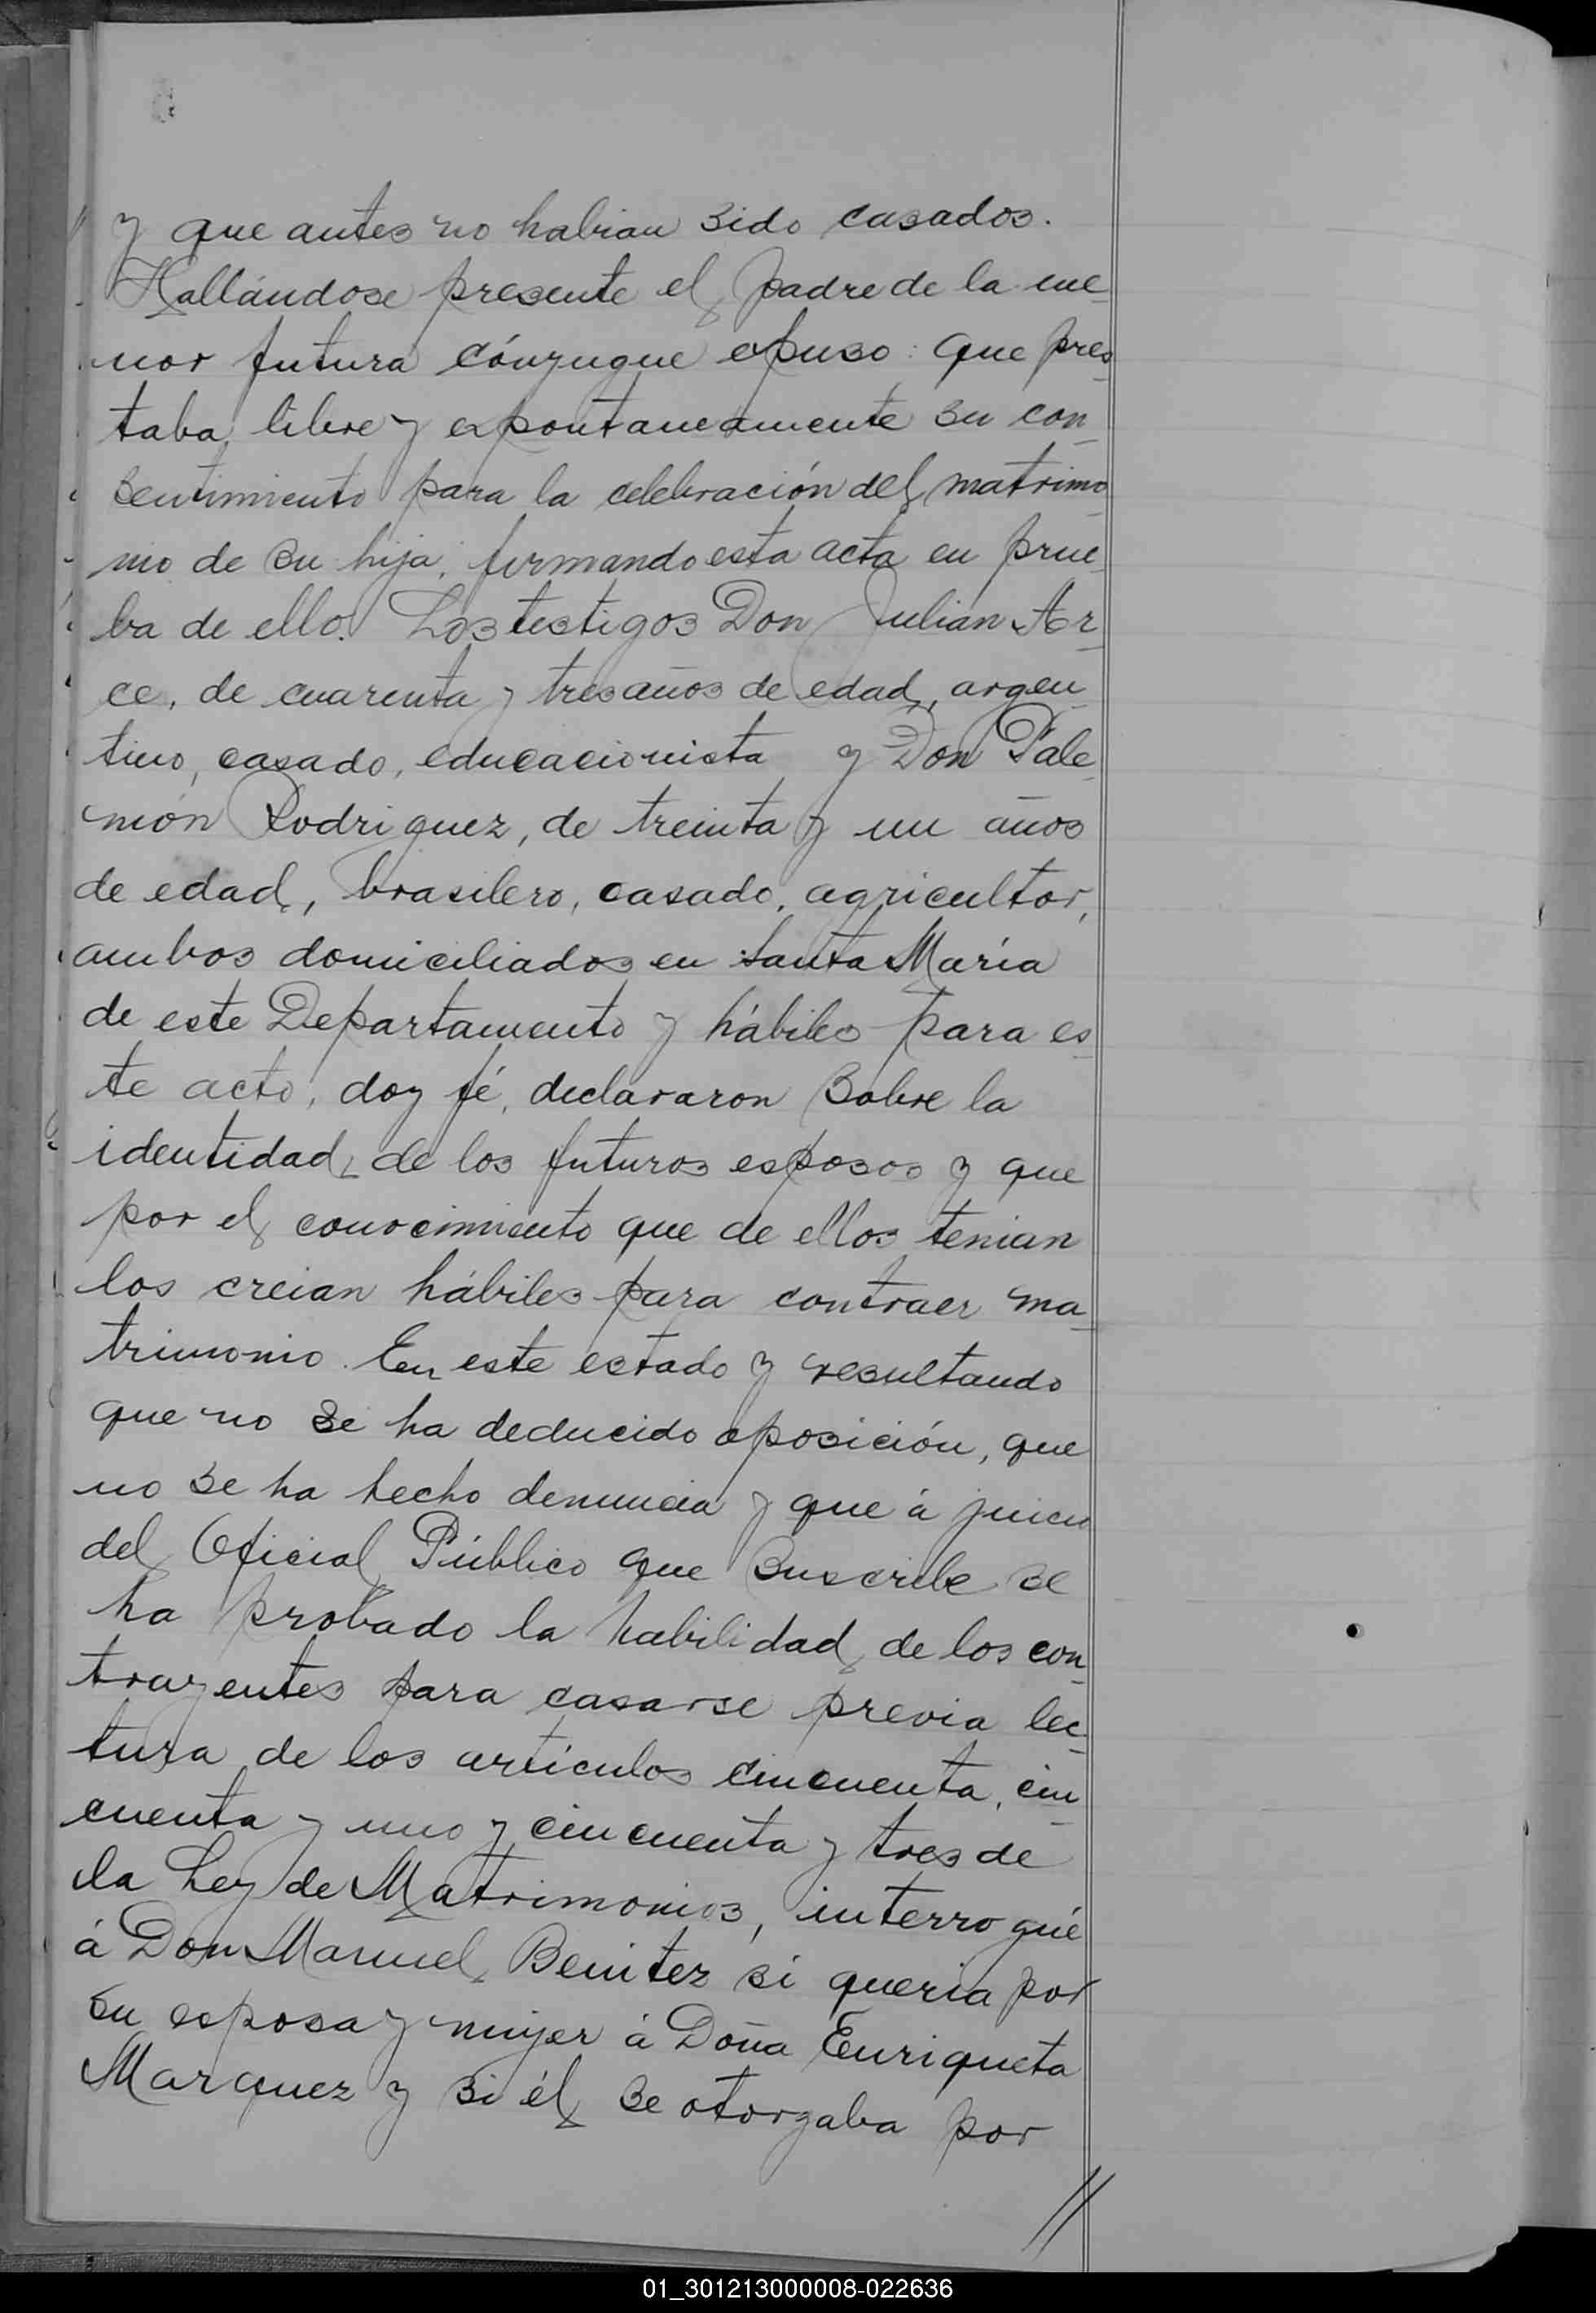 y que antes no habian sido casados.
Hallándose presente el padre de la me-
nor futura cónyugue expuso: que pres-
taba libre y expontaneamente su con-
sentimiento para la celebración del matrimo-
nio de su hija, firmando esta acta en prue-
ba de ello. Los testigos Don Julián Ar-
ce, de cuarenta y tres años de edad, argen-
tino, casado, educacionista y Don Pale-
món Rodriguez, de treinta y un años
de edad, brasilero, casado, agricultor,
ambos domiciliados en Santa María
de este Departamento y hábiles para es-
te acto, doy fé, declararon sobre la
identidad de los futuros esposos y que
por el conocimiento que de ellos tenian
los creian hábiles para contraer ma-
trimonio. En este estado y resultando
que no se ha deducido oposición, que
no se ha hecho denuncia y que á juicio
del Oficial Público que suscribe se
ha probado la habilidad de los con-
trayentes para casarse previa lec-
tura de los artículos cincuenta, cin-
cuenta y uno y cincuenta y tres de
la Ley de Matrimonios, interrogué
á Don Manuel Benitez si queria por
su esposa y mujer á Doña Enriqueta
Marquez y si él se otorgaba por
//
01_301213000008-022636